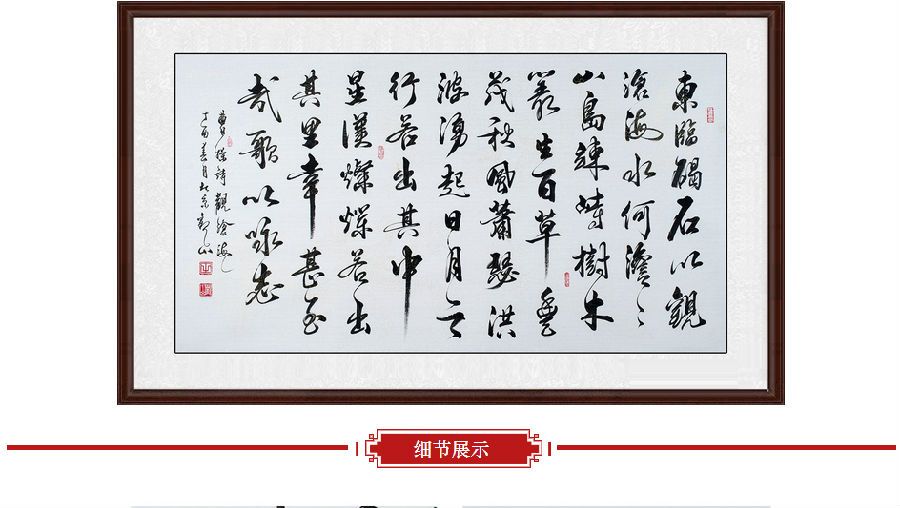 東臨碣石以觀
滄海水何澹〻
山島竦峙樹木
叢生百草豐
茂秋風蕭瑟洪
波湧起日月之
行若出其中
星漢燦爛若出
其里幸甚至
哉歌以詠志
曹操詩觀滄海
丁酉春月北京
细节展示